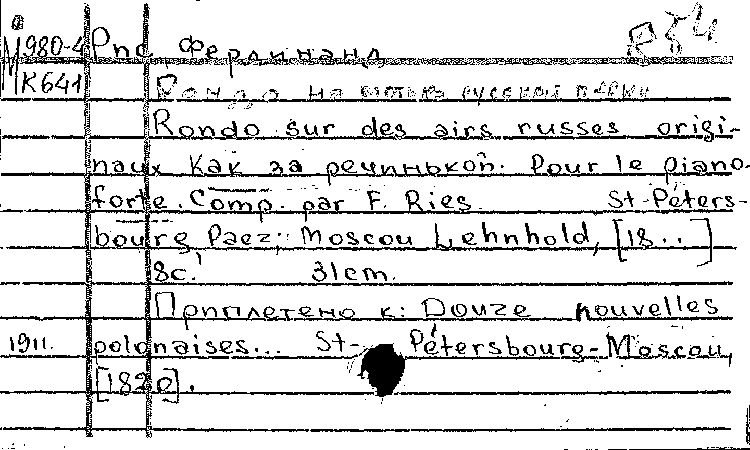 М980-4 Рис, Фердинанд
К641 Рондо на русской
Rondo sur des airs russes origi-
naux Как за речинькой. Pour le piano-
forte. Comp. par F. Ries. St-Péters-
bourg, Paez; Moscou Lehnhold, [18..]
8с. 31cm.
Приплетено к: Douze nouvelles
1911. polonaises... St-Pétersbourg-Moscou,
[1820].